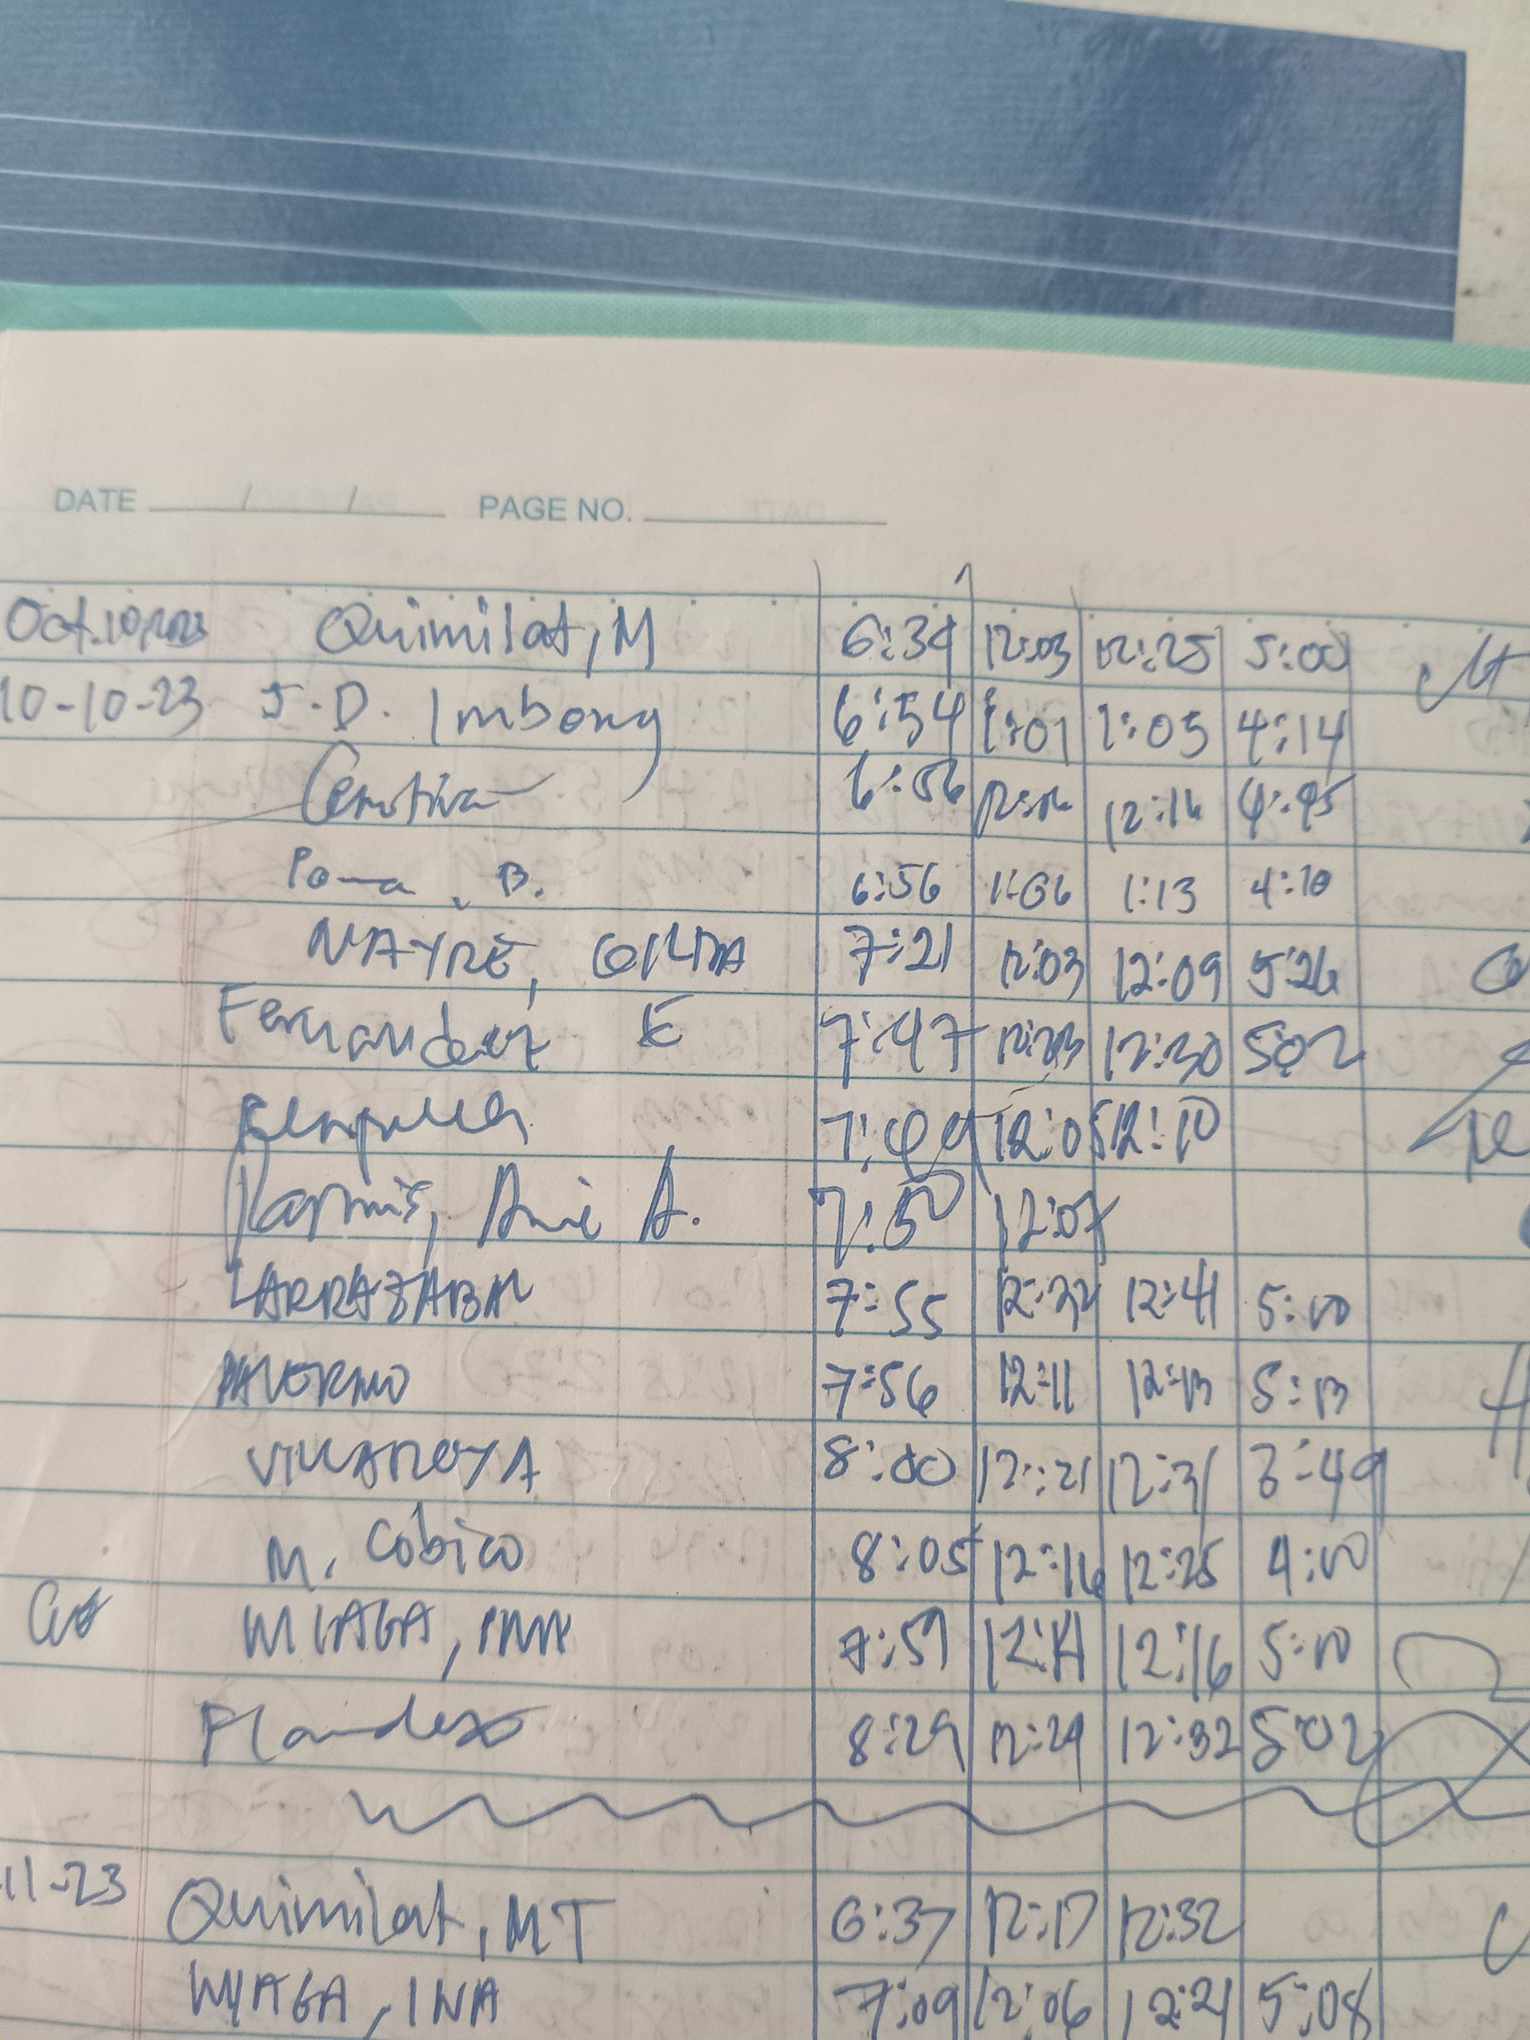 DATE / / PAGE NO.
Oct. 10, 2023 Quimilat, M 6:34 12:03 12:25 5:00
10-10-23 J.D. Imbong 6:54 1:01 1:05 4:14
6:56 12:16 4:45
B. 6:56 1:06 1:13 4:10
NAYRE, GILDA 7:21 12:03 12:09 5:26
Fernandez E 7:47 12:23 12:30 5:02
7:49 12:05 12:10
A. 7:50 12:07
LARRAZABAL 7:55 12:41 5:00
PALERMO 7:56 12:11 12:13 5:13
VILLAROYA 8:00 12:21 12:31 3:49
M. Cobico 8:05 12:16 12:25 4:00
WIAGA, INA 7:59 12:14 12:16 5:00
Flandez 8:29 12:29 12:32 5:02
11-23 Quimilat, MT 6:37 12:17 12:32
WIAGA, INA 7:09 12:06 12:21 5:08